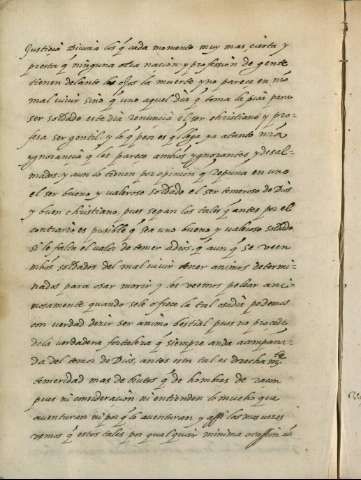 Justicia Divina los q̃ cada momento muy mas cierta y
presta q̃ ninguna otra nacion y profession de gente
tienen delante los ojos la muerte y no parece en nr̃o
mal viuir sino q̃ uno aquel dia q̃ toma la pica para
ser soldado este dia renuncia el ser christiano y pro-
fesa ser gentil y lo q̃ peor es q̃ llega ya a tanto nr̃a
ygnorancia q̃ les parece a muchos ygnorantes y desal-
mados y aun lo tienen por opinion q̃ repuna en uno
el ser bueno y valeroso soldado el ser temeroso de Dios
y buen christiano, pues sepan los tales q̃ antes por el
contrario es pusible q̃ sea uno bueno y valeroso soldado
si le falta el valor de temer a dios, q̃ aun q̃ se veen
muchos soldados del mal viuir tener animos determi-
nados para osar morir y les veemos pelear ani-
mosamente quando se les ofrece la tal osadia podemos
con verdad dezir ser animo bestial pues no procede
de la verdadera fortaleza q̃ siempre anda acompaña-
da del temor de Dios, antes esta tal es derechamte
temeridad mas de brutos q̃ de hombres de razon
pues ni consideracion ni entienden lo mucho que
auenturan ni por q̃ lo auenturan y assi las mas vezes
vemos q̃ estos tales por qualquier minima ocassion